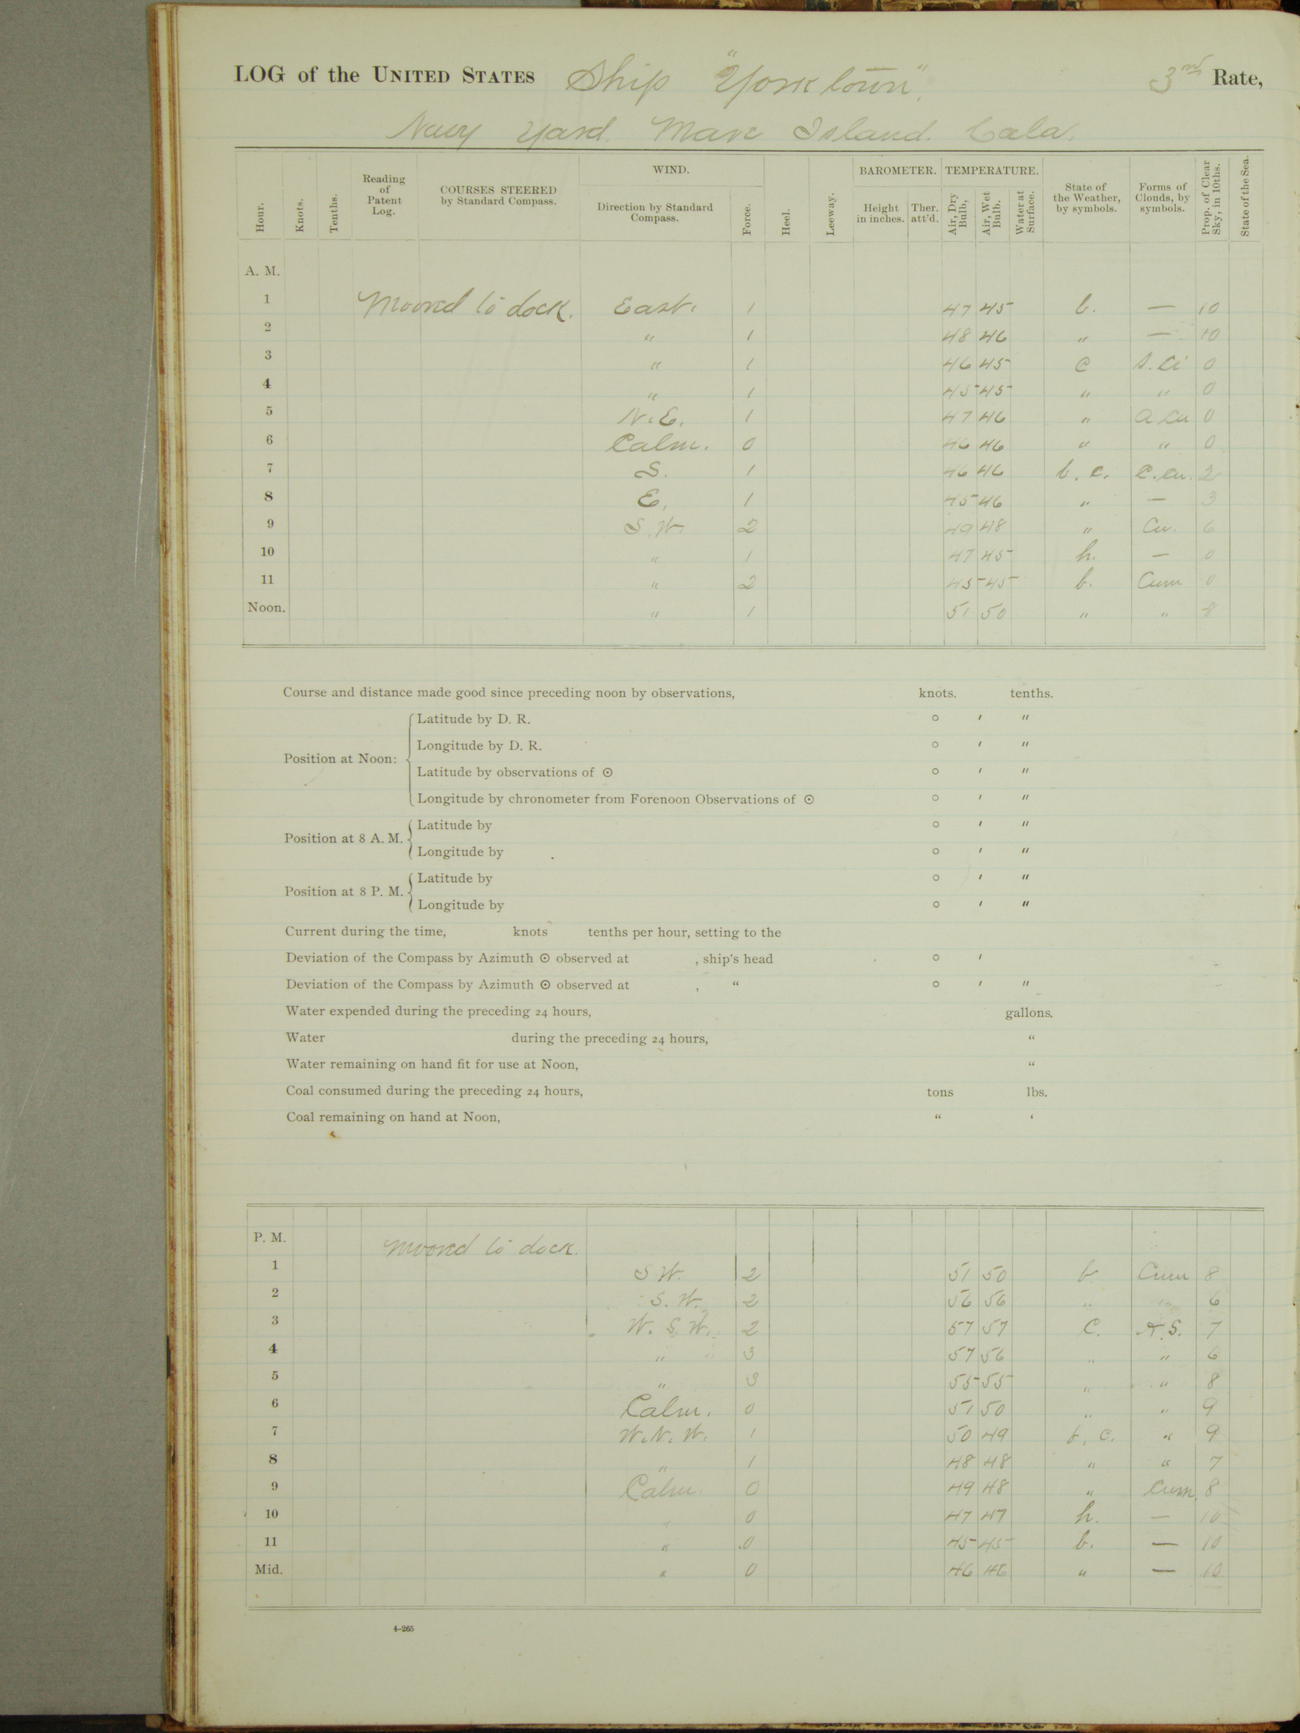 LOG of the UNITED STATES Ship "Yorktown", 3rd Rate,
Navy Yard. Mare Island. Cala.
Hour. Knots. Tenths. Reading of Patent Log. COURSES STEERED by Standard Compass. WIND. Direction by Standard Compass. Force. Heel. Leeway. BAROMETER. Height in inches. Ther. att'd. TEMPERATURE. Air, Dry Bulb, Air, Wet Bulb. Water at Surface. State of the Weather, by symbols. Forms of Clouds, by symbols. Prop. of Clear Sky, in 10ths. State of the Sea.
A. M.
1 Moored to dock. East. 1 47 45 b. — 10
2 " 1 48 46 " — 10
3 " 1 46 45 c S. Ci 0
4 " 1 45 45 " " 0
5 N.E. 1 47 46 " A Cu 0
6 Calm. 0 46 46 " " 0
7 S. 1 46 46 b. c. C. Cu. 2
8 E. 1 45 46 " — 3
9 S.W. 2 49 48 " Cu. 6
10 " 1 47 45 h. — 0
11 " 2 45 45 b. Cum 0
Noon. " 1 51 50 " " 8
Course and distance made good since preceding noon by observations, knots. tenths.
Position at Noon:
Latitude by D. R. ° ′ ″
Longitude by D. R. ° ′ ″
Latitude by observations of ☉ ° ′ ″
Longitude by chronometer from Forenoon Observations of ☉ ° ′ ″
Position at 8 A. M.
Latitude by ° ′ ″
Longitude by ° ′ ″
Position at 8 P. M.
Latitude by ° ′ ″
Longitude by ° ′ ″
Current during the time, knots tenths per hour, setting to the
Deviation of the Compass by Azimuth ☉ observed at , ship's head ° ′
Deviation of the Compass by Azimuth ☉ observed at , " ° ′ ″
Water expended during the preceding 24 hours, gallons.
Water during the preceding 24 hours, "
Water remaining on hand fit for use at Noon, "
Coal consumed during the preceding 24 hours, tons lbs.
Coal remaining on hand at Noon, " '
P. M. Moored to dock.
1 S W. 2 51 50 b Cum 8
2 S. W. 2 56 56 " " 6
3 W. S. W. 2 57 57 C. A. S. 7
4 " 3 57 56 " " 6
5 " 3 55 55 " " 8
6 Calm. 0 51 50 " " 9
7 W. N. W. 1 50 49 b. c. " 9
8 " 1 48 48 " " 7
9 Calm. 0 49 48 " Cum 8
10 " 0 47 47 h. — 10
11 " 0 45 45 b. — 10
Mid. " 0 46 46 " — 10
4–265